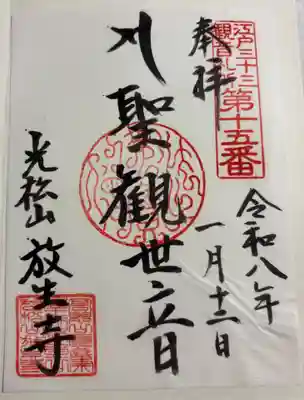 江戸三十三
観音札所
第十五番
奉拝
聖観世音
令和八年
一月十二日
光松山
放生寺